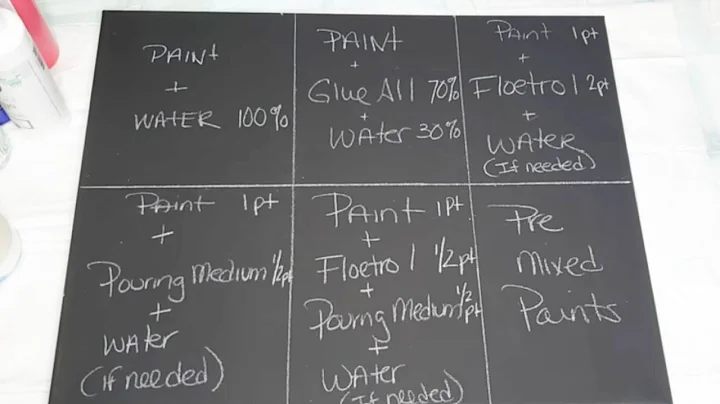 PAINt
+
WATER 100%
PAINt
+
Glue All 70%
+
WAter 30%
Paint 1pt
+
Floetrol 2pt
+
WATER
(If needed)
Paint 1pt
+
Pouring Medium 1/2pt
+
WAter
(if needed)
PAint 1pt
+
Floetrol 1/2pt
+
Pourng Medium 1/2pt
+
WAter
(If needed)
Pre
mixed
Paints